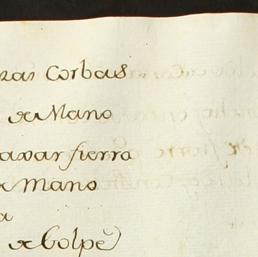 zas Corbas
de Mano
avar fierro
de Mano
a
de Golpe